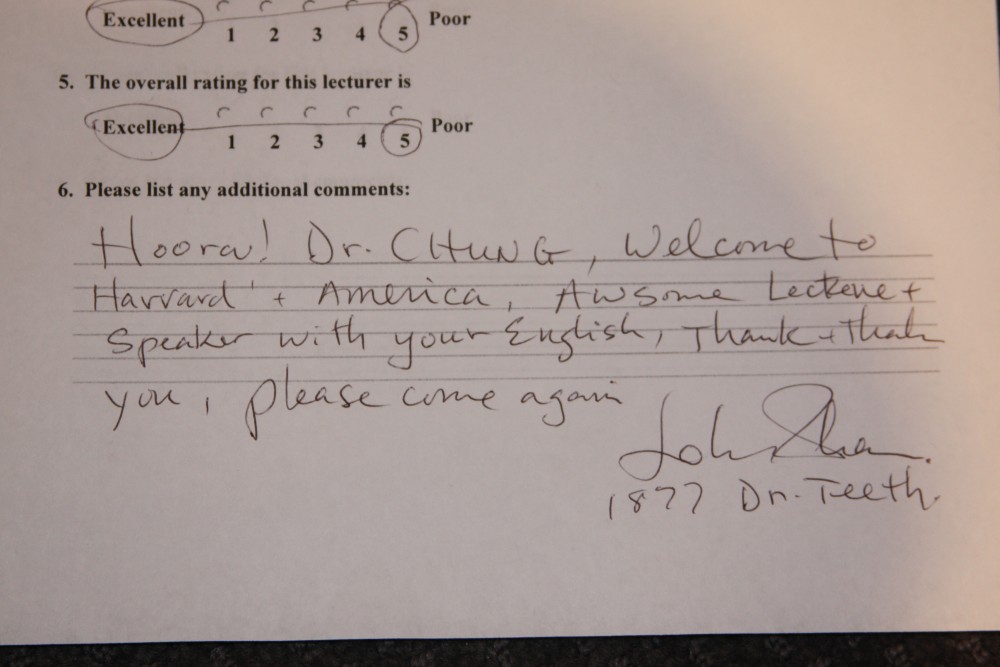 Excellent 1 2 3 4 5 Poor
5. The overall rating for this lecturer is
Excellent 1 2 3 4 5 Poor
6. Please list any additional comments:
Hooray! Dr. CHUNG, Welcome to
Harvard + America, Awsome Lecture +
Speaker with your English, Thank + Thank
you, please come again
John
1877 Dr. Teeth.